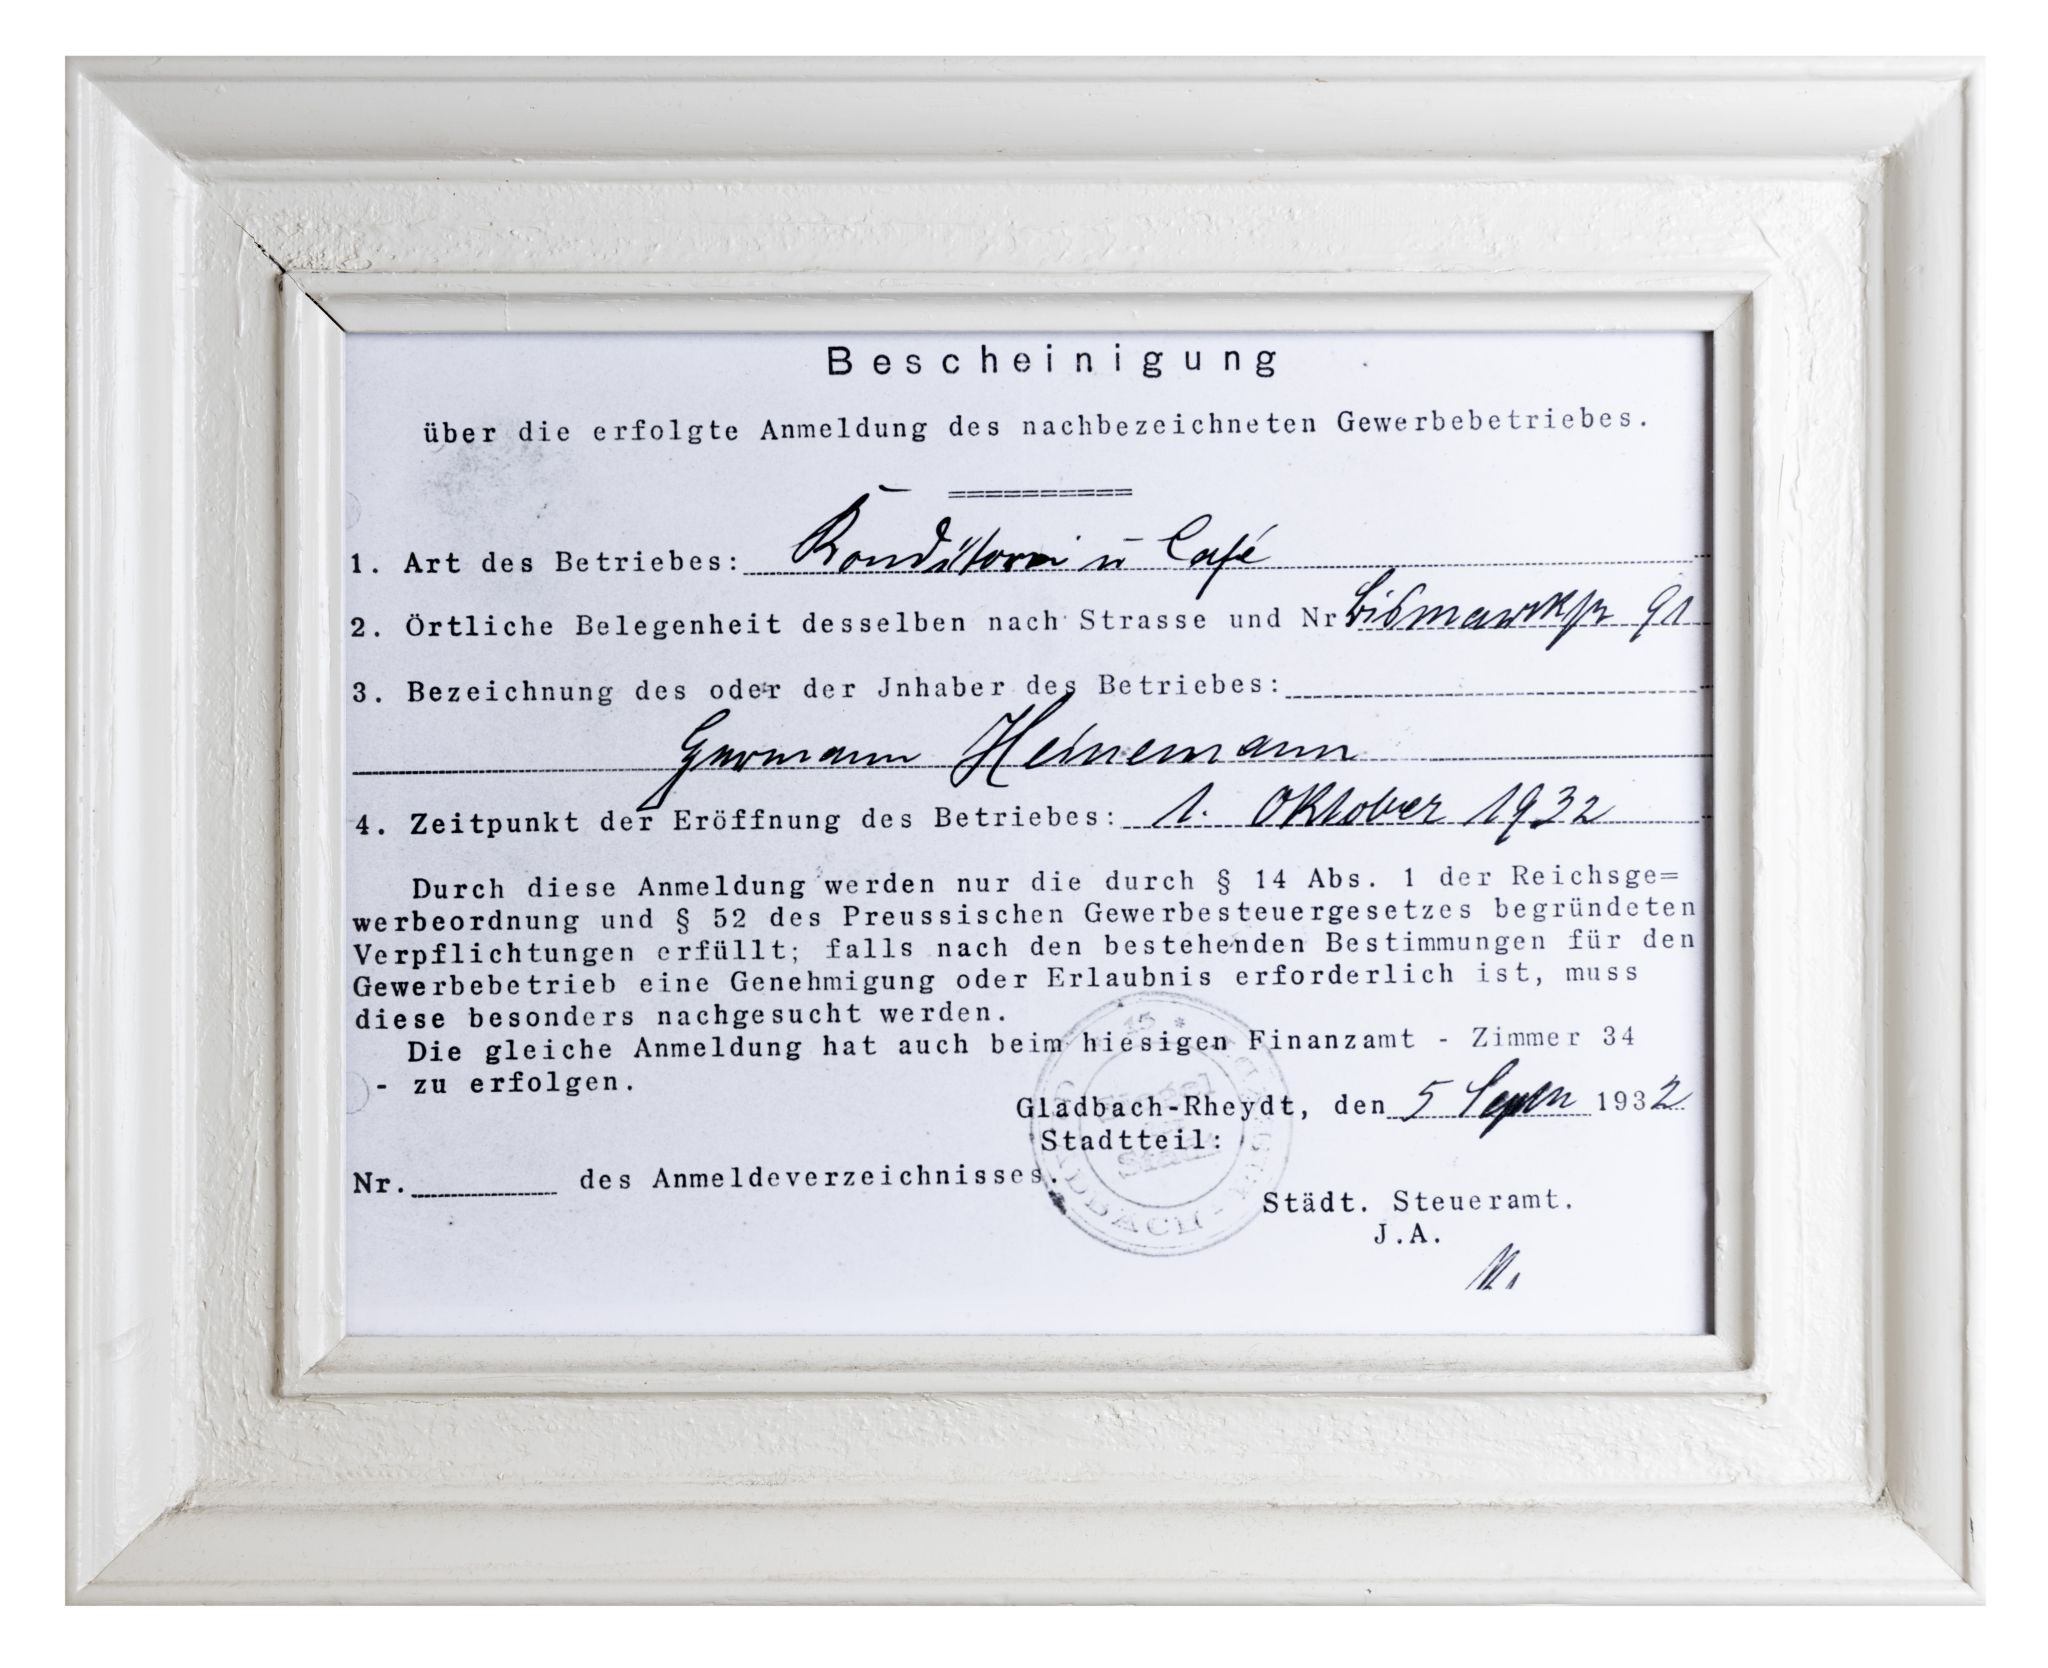 Bescheinigung
über die erfolgte Anmeldung des nachbezeichneten Gewerbebetriebes.
==========
1. Art des Betriebes: Konditorei u Café
2. Örtliche Belegenheit desselben nach Strasse und Nr Bismarckstr 91
3. Bezeichnung des oder der Jnhaber des Betriebes:
Hermann Heinemann
4. Zeitpunkt der Eröffnung des Betriebes: 1. Oktober 1932
Durch diese Anmeldung werden nur die durch § 14 Abs. 1 der Reichsge=
werbeordnung und § 52 des Preussischen Gewerbesteuergesetzes begründeten
Verpflichtungen erfüllt; falls nach den bestehenden Bestimmungen für den
Gewerbebetrieb eine Genehmigung oder Erlaubnis erforderlich ist, muss
diese besonders nachgesucht werden.
Die gleiche Anmeldung hat auch beim hiesigen Finanzamt - Zimmer 34
- zu erfolgen.
Gladbach-Rheydt, den 5 Septem 1932
Stadtteil:
Nr. des Anmeldeverzeichnisses.
Städt. Steueramt.
J.A.
15 *
Siegel
der
Stadt
GLADBACH-RHEYDT